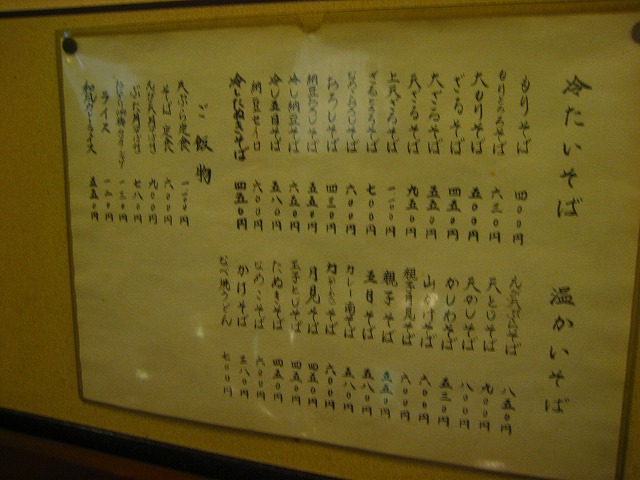 冷たいそば
もりそば 四〇〇円
もりとろろそば 六三〇円
大もりそば 五〇〇円
ざるそば 四五〇円
大ざるそば 五五〇円
天ざるそば 九五〇円
上天ざるそば
ざるとろろそば 七〇〇円
六〇〇円
おろしそば 四三〇円
納豆おろしそば 五五〇円
冷し納豆そば 六五〇円
冷し五目そば 五八〇円
納豆セイロ 六〇〇円
冷したぬきそば 四五〇円
温かいそば
天ぷらそば 八五〇円
天とじそば 九〇〇円
天かしそば 八〇〇円
かしわそば 五三〇円
山かけそば 六〇〇円
親子月見そば 六〇〇円
親子そば 五五〇円
五目そば 五八〇円
カレー南そば 五八〇円
六〇〇円
月見そば 四五〇円
玉子とじそば 四五〇円
たぬきそば 四五〇円
なめこそば 六〇〇円
かけそば 三八〇円
なべ焼うどん 七〇〇円
ご飯物
天ぷら定食
そば定食 六〇〇円
九〇〇円
七八〇円
ライス
和風カレーライス 五五〇円